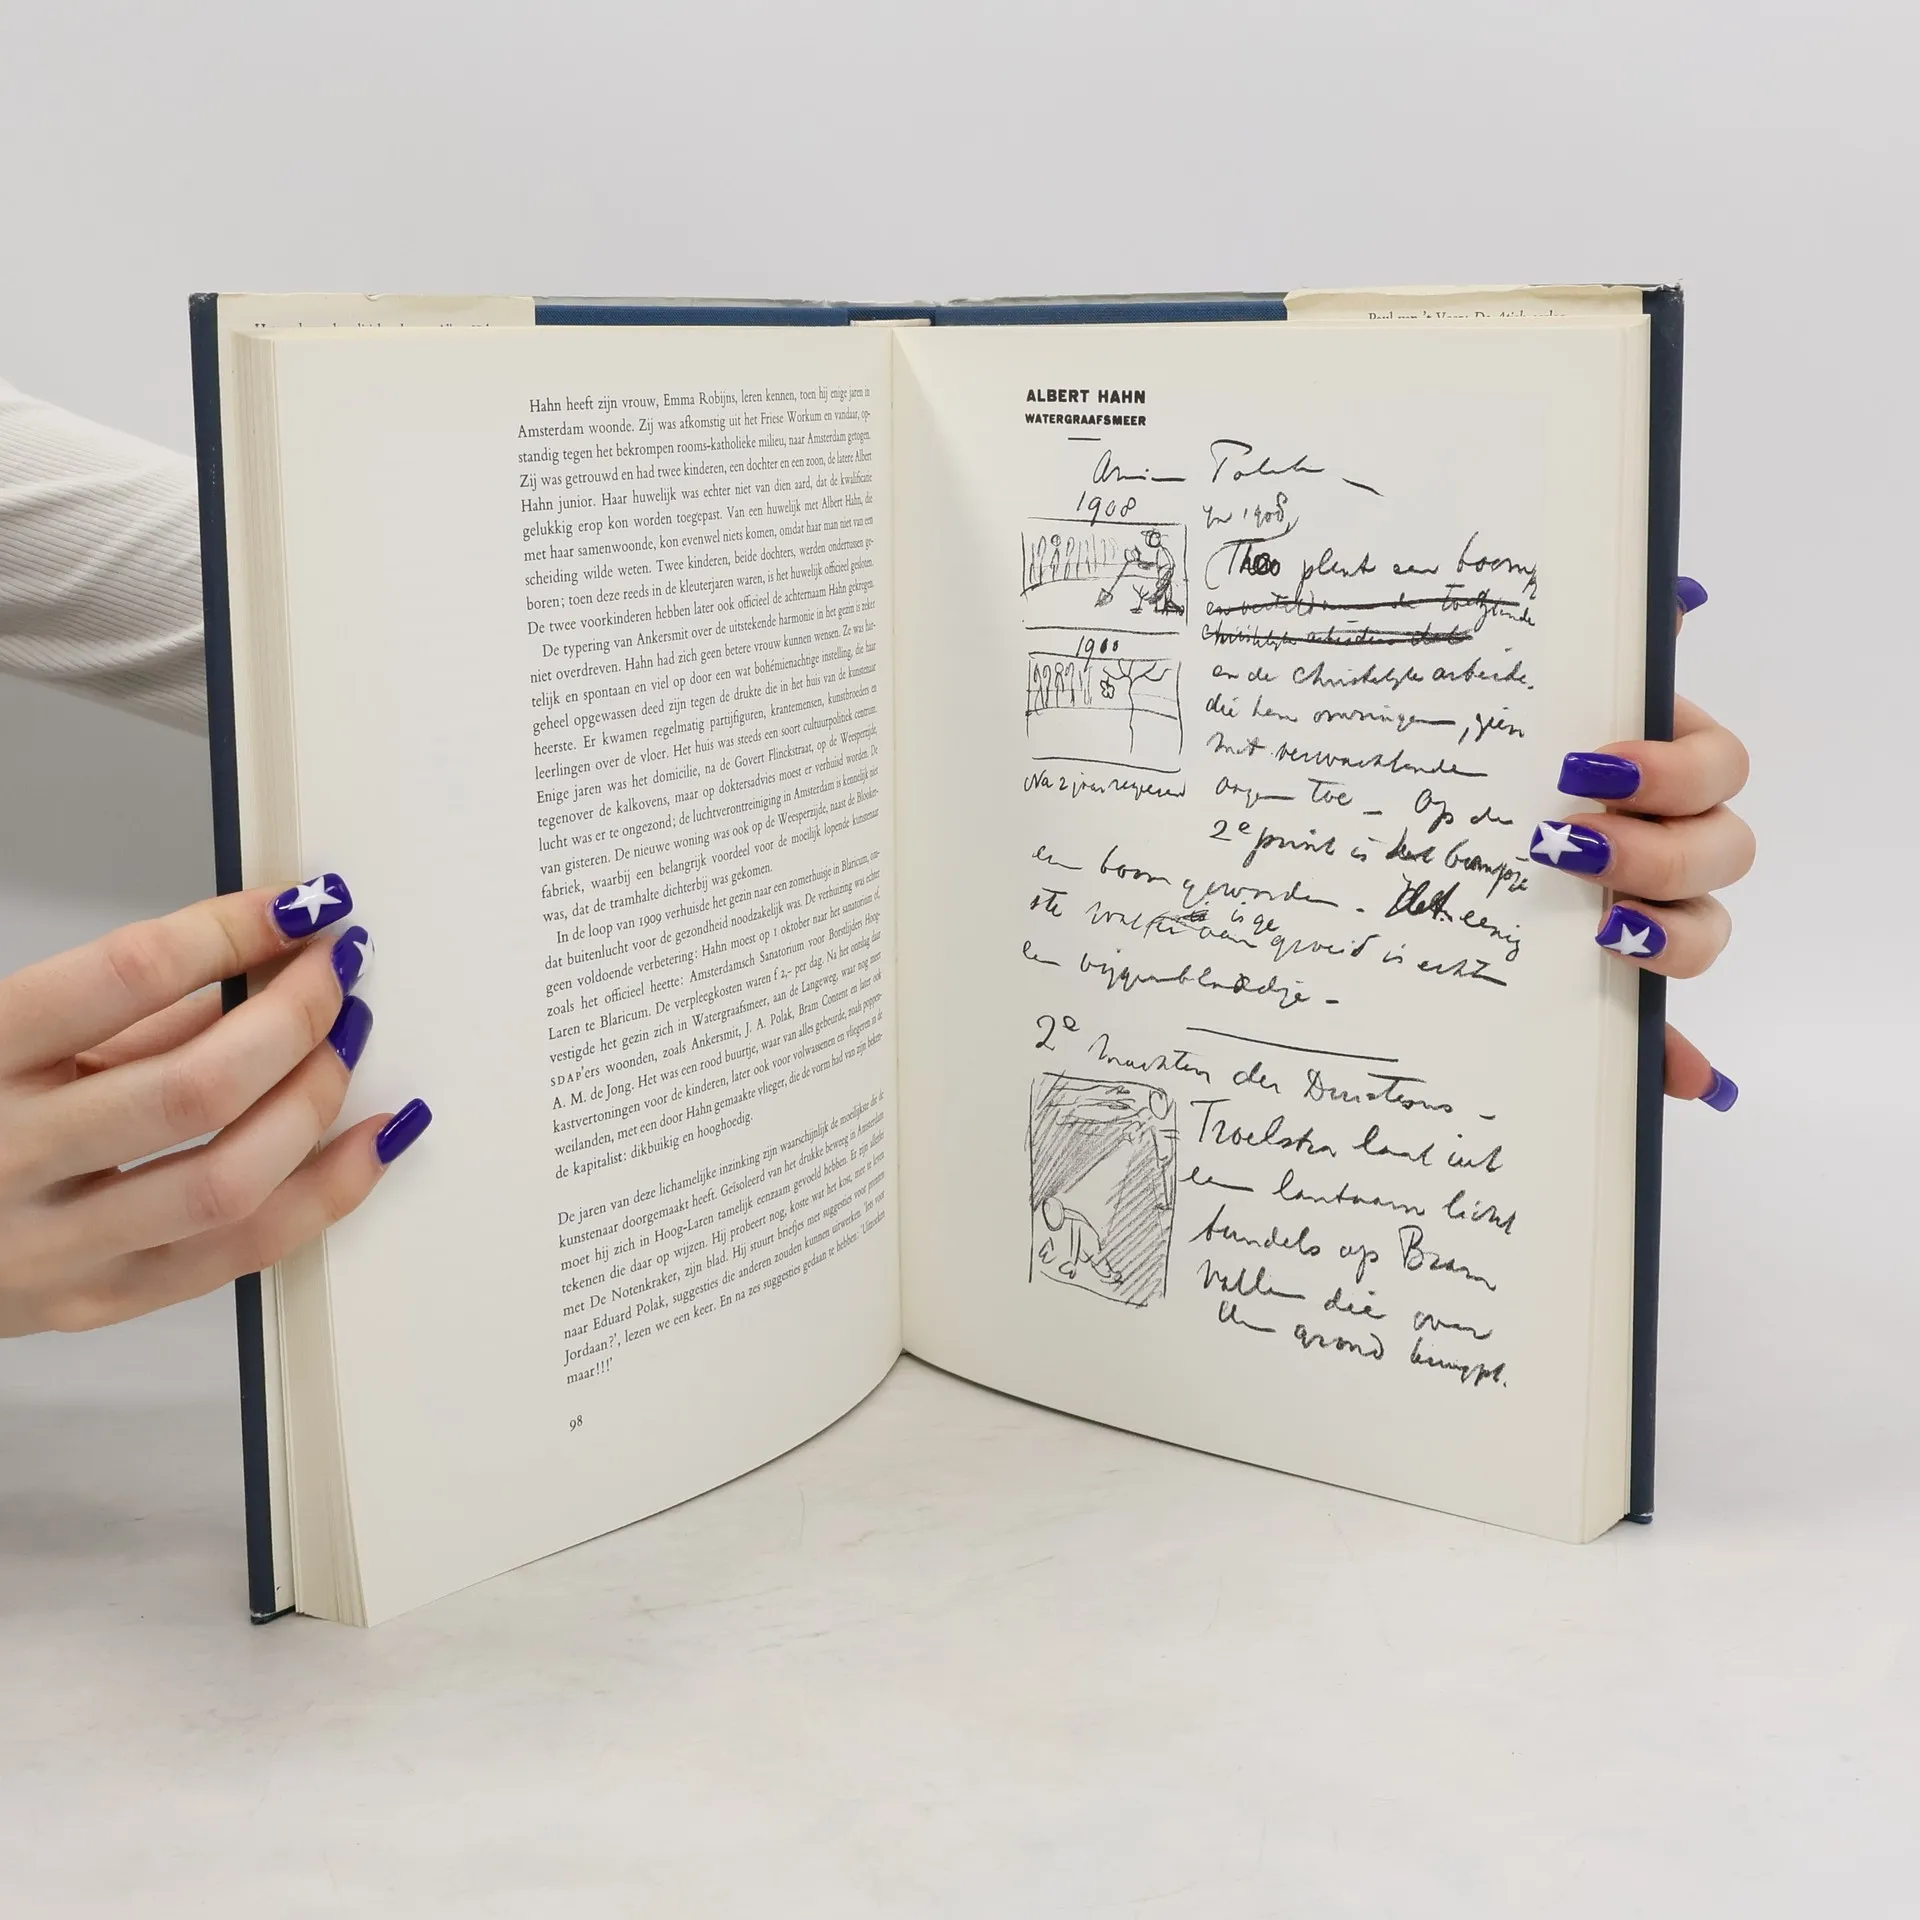 Hahn heeft zijn vrouw, Emma Robijns, leren kennen, toen hij enige jaren in
Amsterdam woonde. Zij was afkomstig uit het Friese Workum en vandaar, op-
standig tegen het bekrompen rooms-katholieke milieu, naar Amsterdam getogen.
Zij was getrouwd en had twee kinderen, een dochter en een zoon, de latere Albert
Hahn junior. Haar huwelijk was echter niet van dien aard, dat de kwalificatie
gelukkig erop kon worden toegepast. Van een huwelijk met Albert Hahn, die
met haar samenwoonde, kon evenwel niets komen, omdat haar man niet van een
scheiding wilde weten. Twee kinderen, beide dochters, werden ondertussen ge-
boren; toen deze reeds in de kleuterjaren waren, is het huwelijk officieel gesloten.
De twee voorkinderen hebben later ook officieel de achternaam Hahn gekregen.
De typering van Ankersmit over de uitstekende harmonie in het gezin is zeker
niet overdreven. Hahn had zich geen betere vrouw kunnen wensen. Ze was har-
telijk en spontaan en viel op door een wat bohémienachtige instelling, die haar
geheel opgewassen deed zijn tegen de drukte die in het huis van de kunstenaar
heerste. Er kwamen regelmatig partijfiguren, krantemensen, kunstbroeders en
leerlingen over de vloer. Het huis was steeds een soort cultuurpolitiek centrum.
Enige jaren was het domicilie, na de Govert Flinckstraat, op de Weesperzijde,
tegenover de kalkovens, maar op doktersadvies moest er verhuisd worden. De
lucht was er te ongezond; de luchtverontreiniging in Amsterdam is kennelijk niet
van gisteren. De nieuwe woning was ook op de Weesperzijde, naast de Blooker-
fabriek, waarbij een belangrijk voordeel voor de moeilijk lopende kunstenaar
was, dat de tramhalte dichterbij was gekomen.
In de loop van 1909 verhuisde het gezin naar een zomerhuisje in Blaricum, om-
dat buitenlucht voor de gezondheid noodzakelijk was. De verhuizing was echter
geen voldoende verbetering: Hahn moest op 1 oktober naar het sanatorium of,
zoals het officieel heette: Amsterdamsch Sanatorium voor Borstlijders Hoog-
Laren te Blaricum. De verpleegkosten waren f 2,- per dag. Na het ontslag daar
vestigde het gezin zich in Watergraafsmeer, aan de Langeweg, waar nog meer
SDAP'ers woonden, zoals Ankersmit, J. A. Polak, Bram Content en later ook
A. M. de Jong. Het was een rood buurtje, waar van alles gebeurde, zoals poppen-
kastvertoningen voor de kinderen, later ook voor volwassenen en vliegeren in de
weilanden, met een door Hahn gemaakte vlieger, die de vorm had van zijn beken-
de kapitalist: dikbuikig en hooghoedig.
De jaren van deze lichamelijke inzinking zijn waarschijnlijk de moeilijkste die de
kunstenaar doorgemaakt heeft. Geïsoleerd van het drukke beweeg in Amsterdam
moet hij zich in Hoog-Laren tamelijk eenzaam gevoeld hebben. Er zijn allerlei
tekenen die daar op wijzen. Hij probeert nog, koste wat het kost, mee te leven
met De Notenkraker, zijn blad. Hij stuurt briefjes met suggesties voor prenten
naar Eduard Polak, suggesties die anderen zouden kunnen uitwerken. 'Iets voor
Jordaan?', lezen we een keer. En na zes suggesties gedaan te hebben: 'Uitzoeken
maar!!!'
98
Paul van 't Veer: De Atjeh-oorlog
ALBERT HAHN
WATERGRAAFSMEER
Polak
1908
In 1908
Theo plant een boompje
1900
en de christelijke arbeide.
die hem omringen, zien
met verwachtende
Na 2 jaar regeren
oogen toe - Op de
2e prent is het boompje
een boom geworden - Het eenig
ste wat er aan gegroeid is echt
een vijgenblaadje -
2e
der Duisternis -
Troelstra laat uit
een lantaarn licht
bundels op Bram
vallen die over
den grond kruipt.